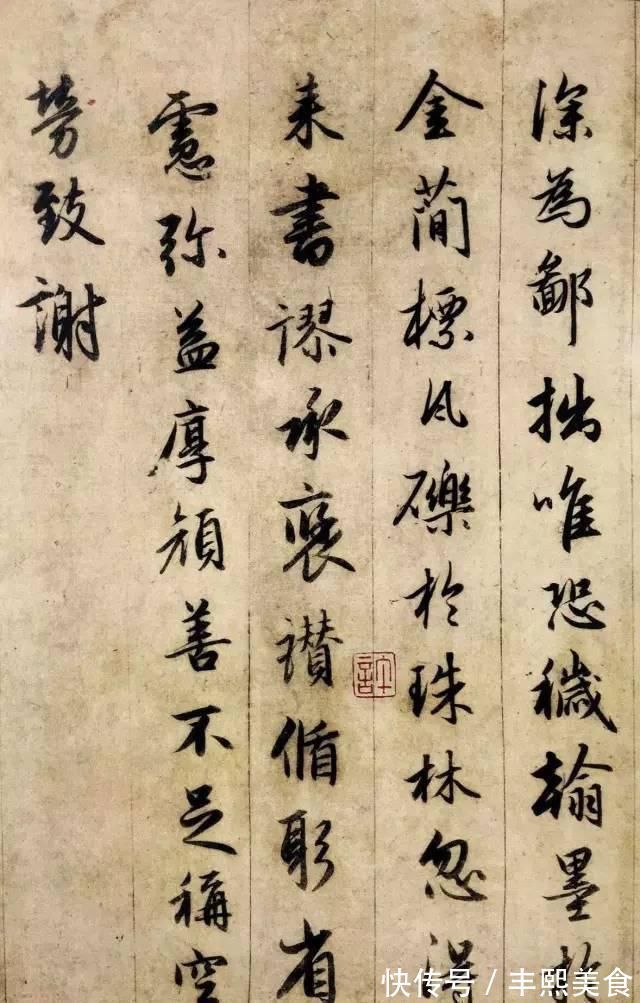 深為鄙拙唯恐穢翰墨於
金蕳標瓦礫於珠林忽得
来書謬承褒讃循躬省
慮弥益厚顔善不足稱空
勞致謝
快传号/丰熙美食